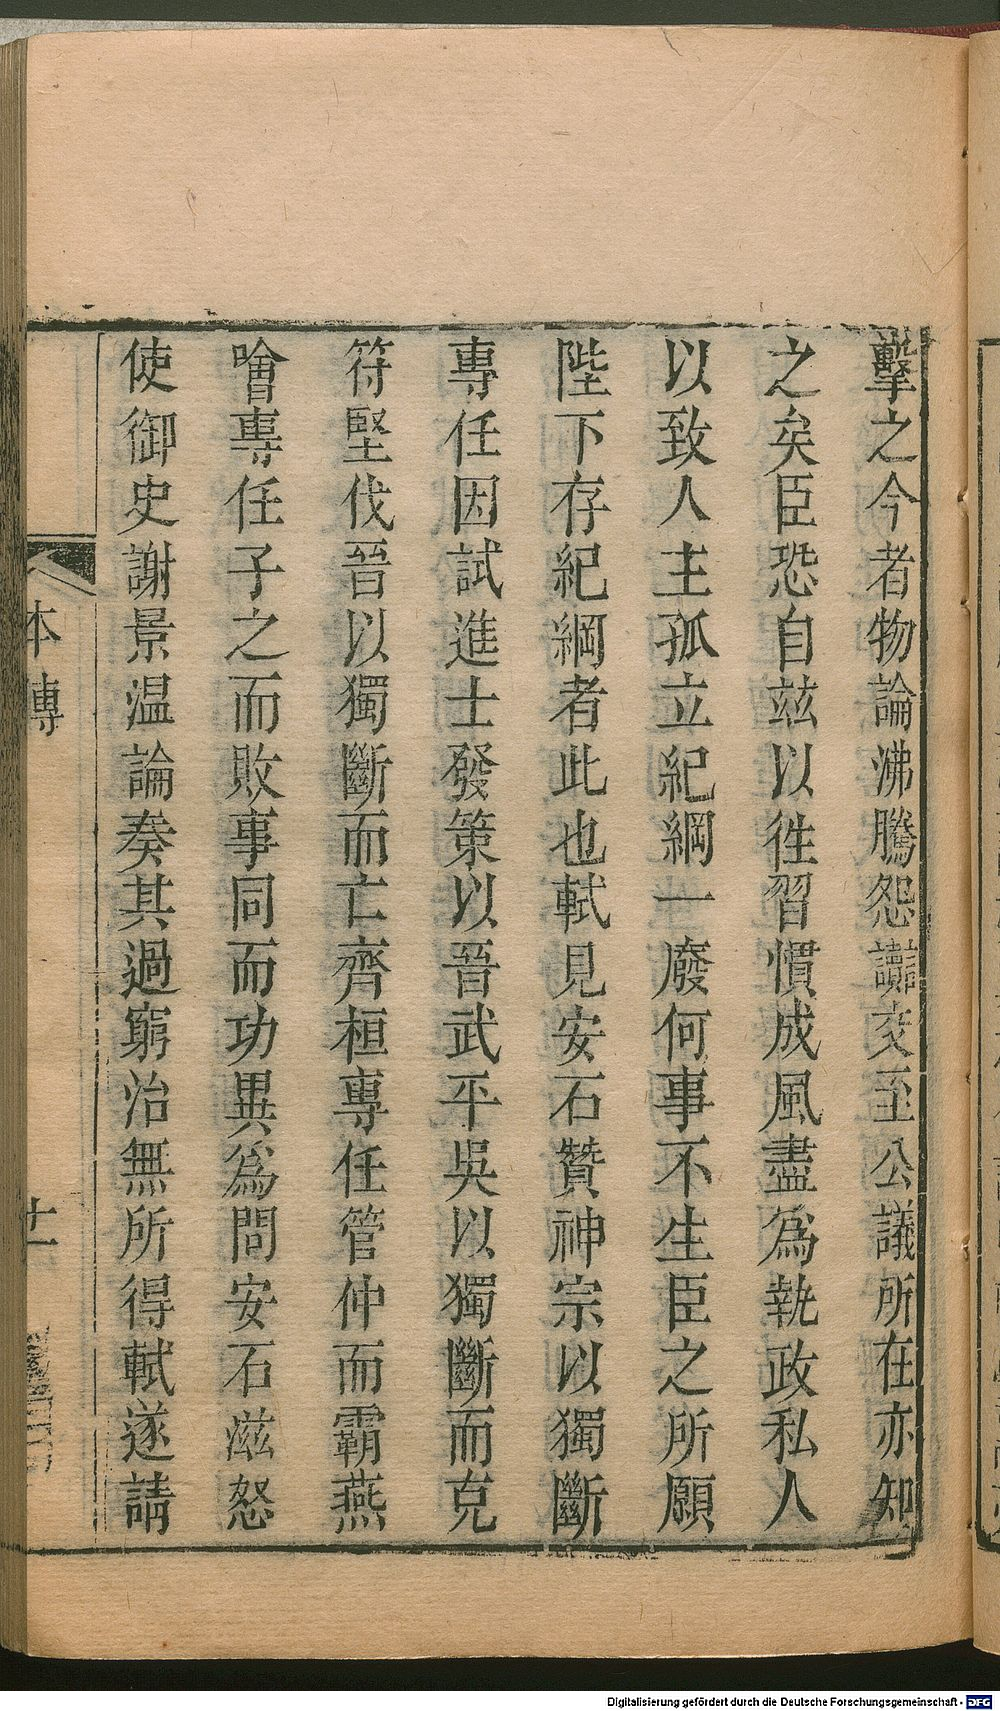 擊之今者物論沸騰怨讟交至公議所在亦知
之矣臣恐自茲以徃習慣成風盡爲執政私人
以致人主孤立紀綱一廢何事不生臣之所願
陛下存紀綱者此也軾見安石贊神宗以獨斷
專任因試進士發策以晉武平吳以獨斷而克
符堅伐晉以獨斷而亡齊桓專任管仲而霸燕
噲專任子之而敗事同而功異爲問安石滋怒
使御史謝景温論奏其過窮治無所得軾遂請
本傳
十一
Digitalisierung gefördert durch die Deutsche Forschungsgemeinschaft - DFG